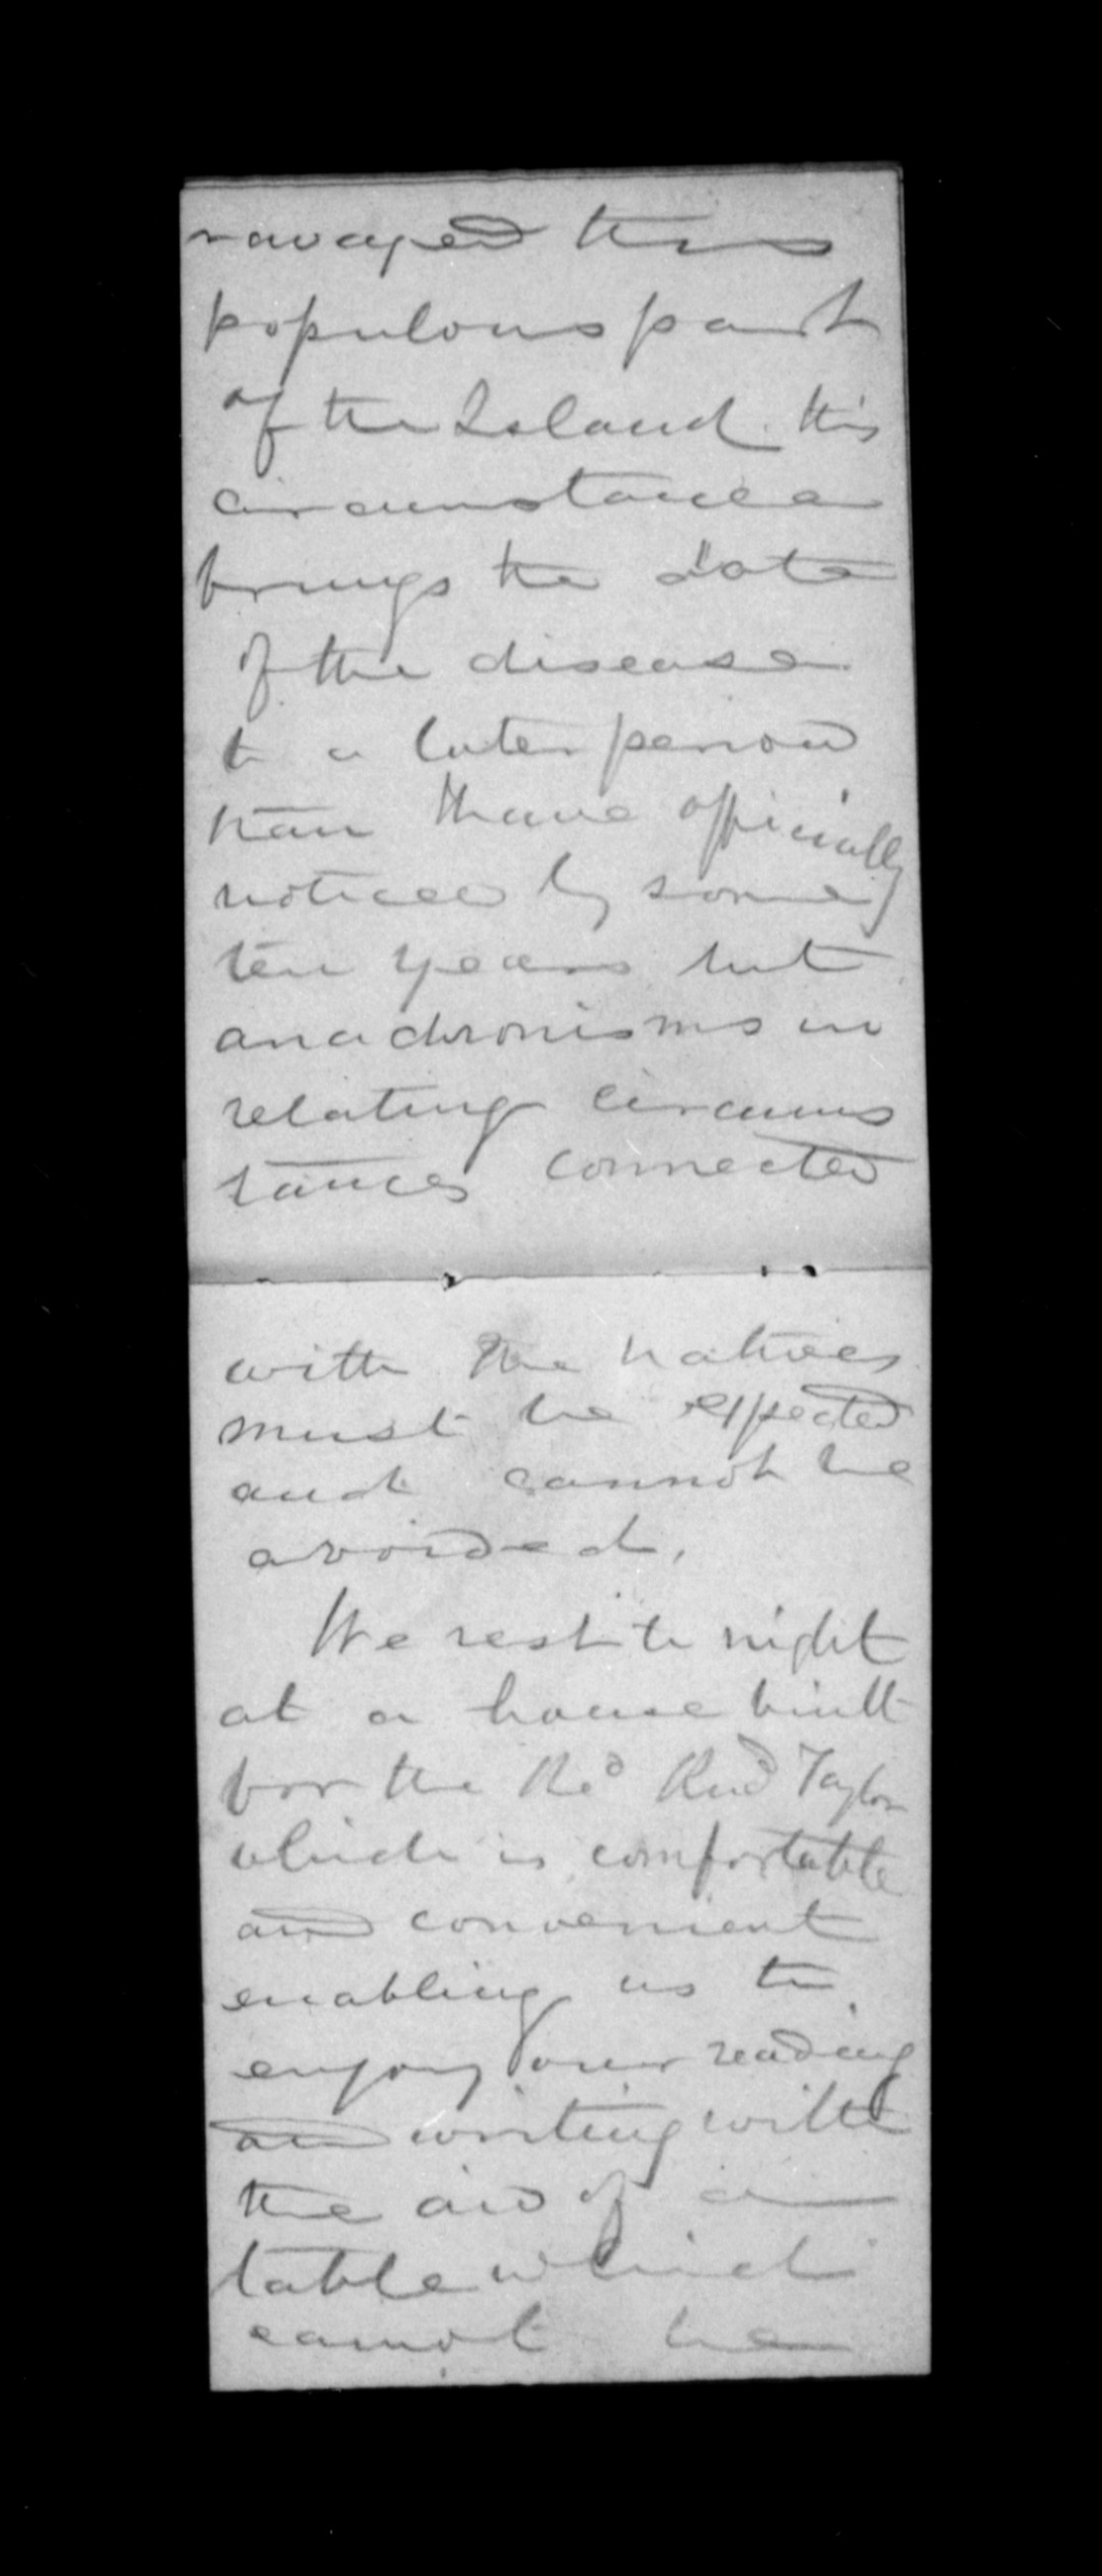 ravaged this
populous part
of the Island. this
circumstance
brings the date
of the disease
to a later period
than I have officially
noticed by some
ten years but
anachronisms in
relating circums
tances connected
with the natives
must be expected
and cannot be
avoided.
We rest to night
at a house built
for the Rd Taylor
which is comfortable
and convenient
enabling us to
enjoy our reading
and writing with
the aid of a
table which
cannot be